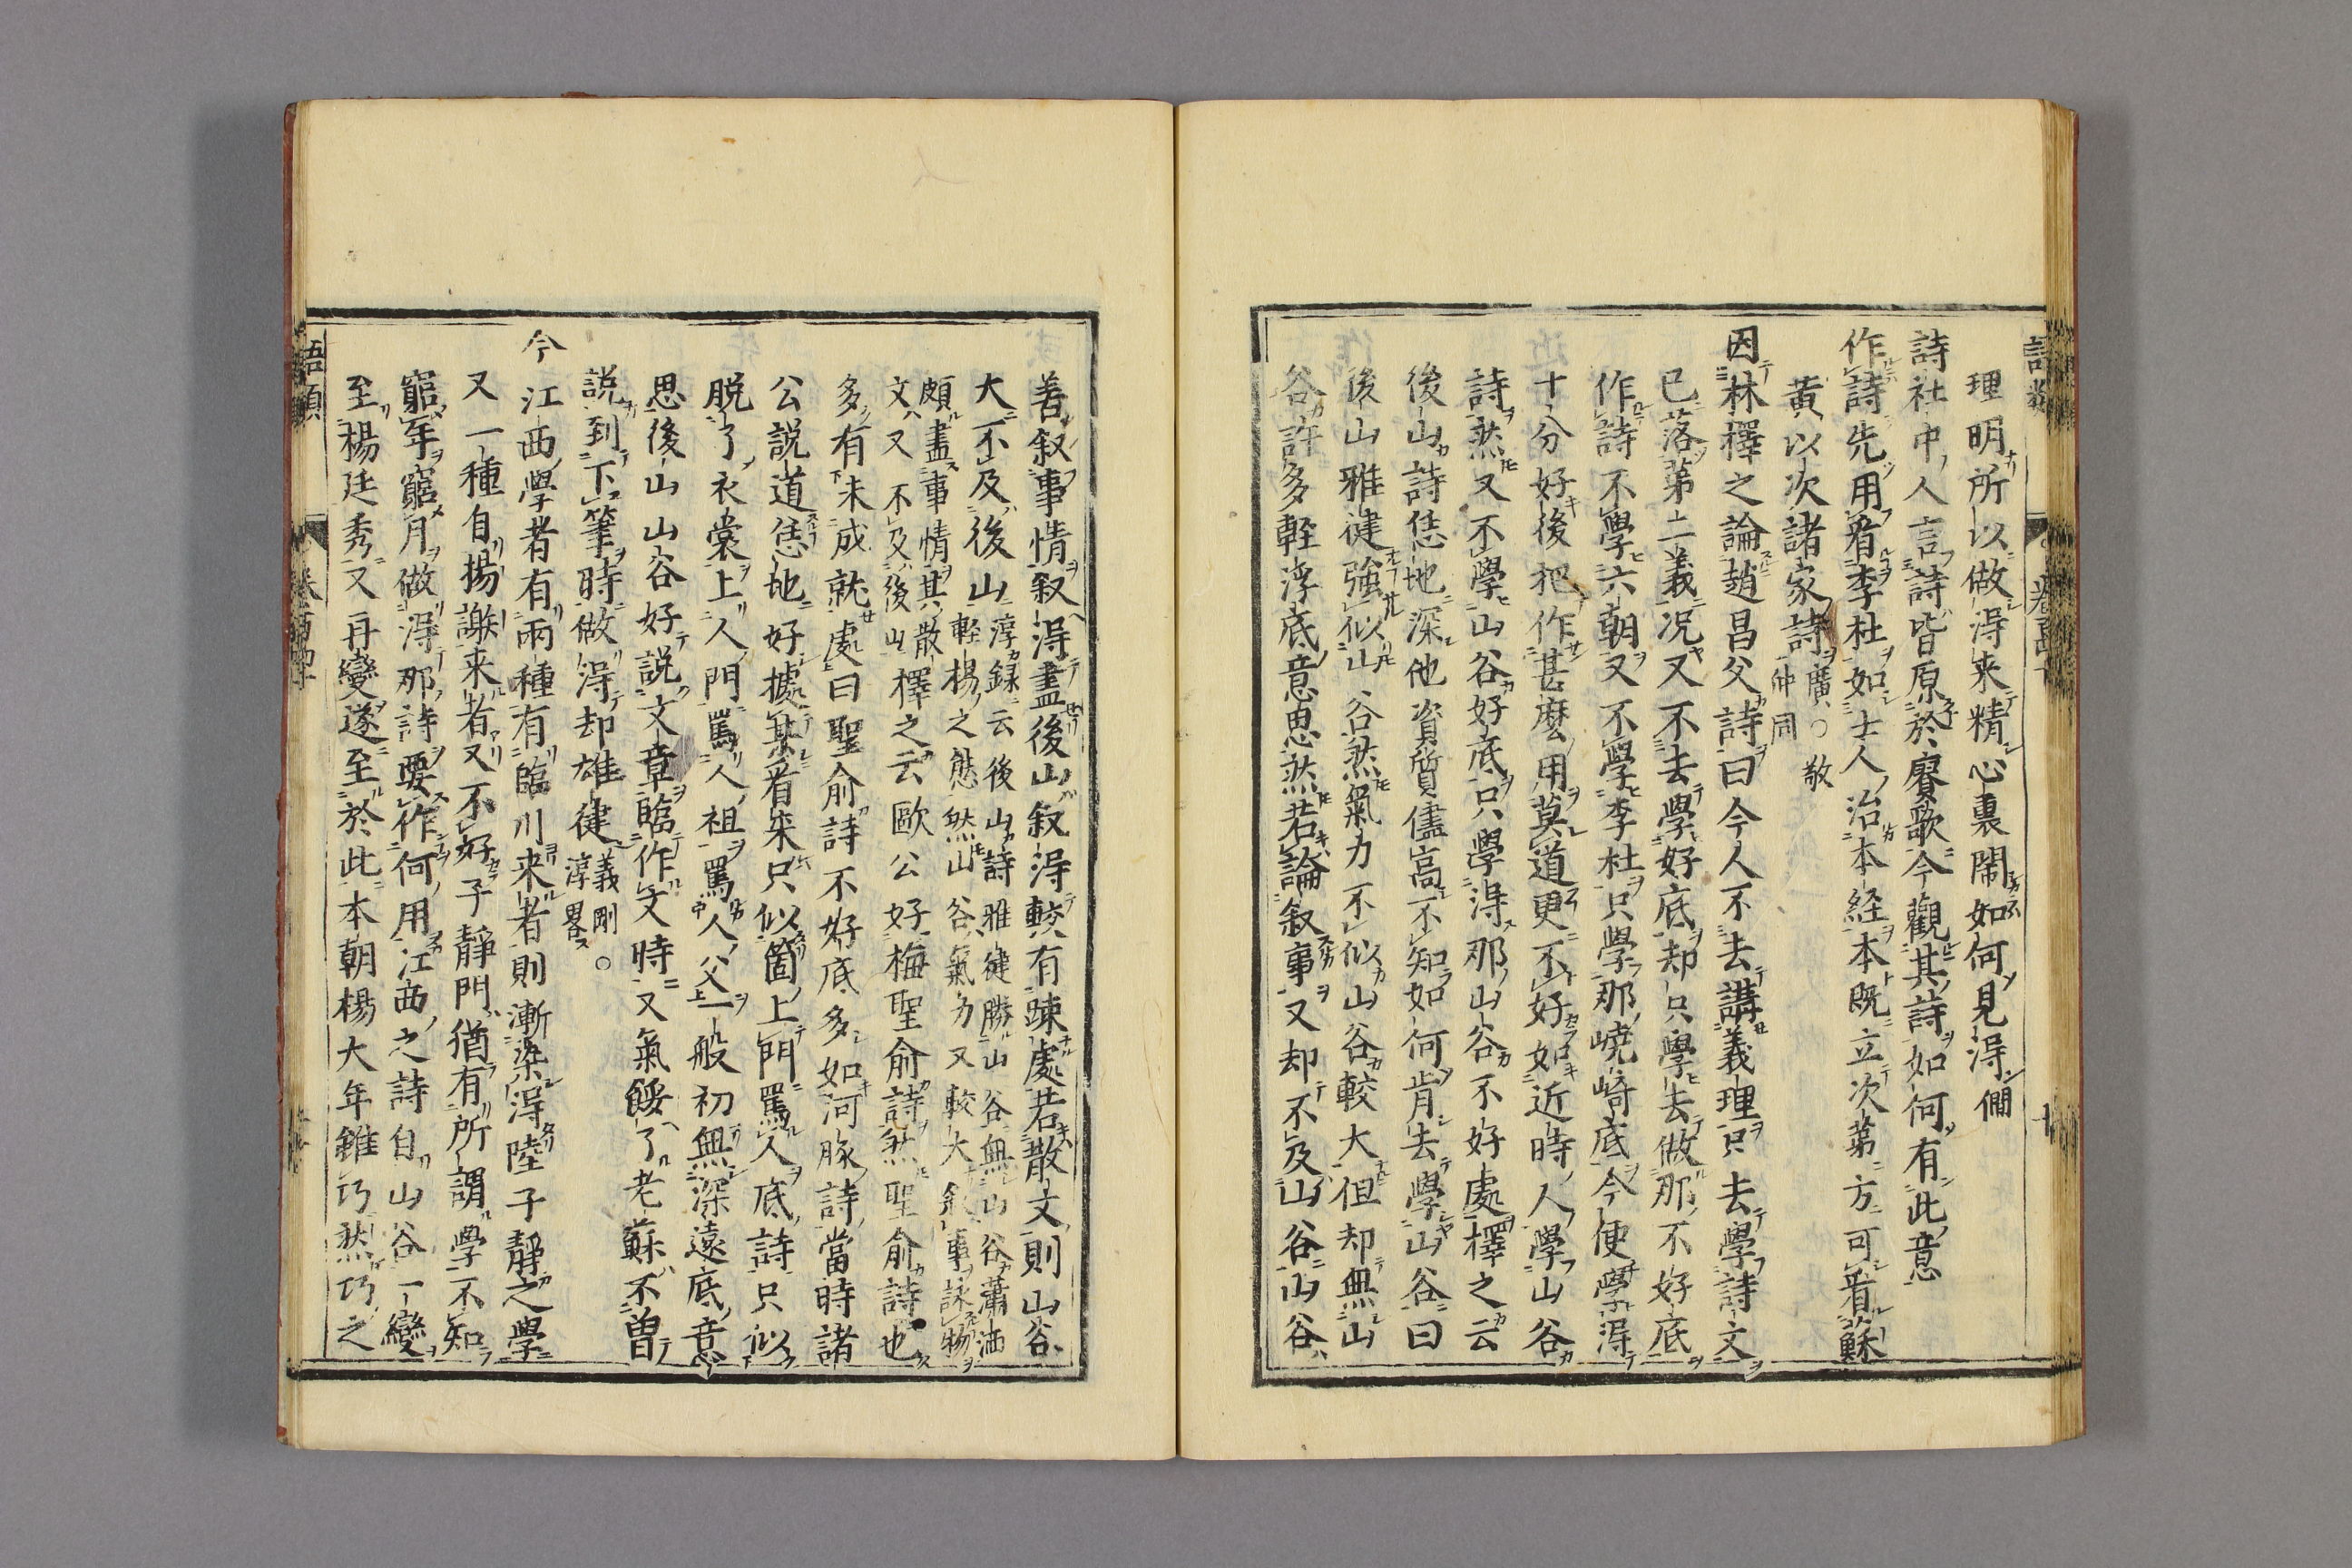 理明所以做得来精心裏鬧如何見得僩
詩社中人言詩皆原於賡歌今觀其詩如何有此意
作詩先用看李杜如士人治本経本既立次第方可看蘇
黄以次諸家詩廣○敬仲同
因林擇之論趙昌父詩曰今人不去講義理只去學詩文
已落第二義况又不去學好底却只學去做那不好底
作詩不學六朝又不學李杜只學那嶢崎底今便學得
十分好後把作甚麽用莫道更不好如近時人學山谷
詩然又不學山谷好底只學得那山谷不好處擇之云
後山詩恁地深他資質儘高不知如何肯去學山谷曰
後山雅健強似山谷然氣力不似山谷較大但却無山
谷許多輕浮底意思然若論叙事又却不及山谷山谷
善叙事情叙得盡後山叙得較有踈處若散文則山谷
大不及後山淳録云後山詩雅健勝山谷無山谷瀟洒
輕揚之態然山谷氣力又較大叙事詠物
頗盡事情其散
文又不及後山擇之云歐公好梅聖俞詩然聖俞詩也
多有未成就處曰聖俞詩不好底多如河豚詩當時諸
公説道恁地好據某看来只似箇上門罵人底詩只似
脱了衣裳上人門罵人祖罵人父一般初無深遠底意
思後山山谷好説文章臨作文時又氣餒了老蘇不曽
説到下筆時做得却雄健義剛○淳畧
今江西學者有兩種有臨川来者則漸染得陸子靜之學
又一種自揚謝来者又不好子靜門猶有所謂學不知
窮年窮月做得那詩要作何用江西之詩自山谷一變
至楊廷秀又再變遂至於此本朝楊大年雖巧然巧之